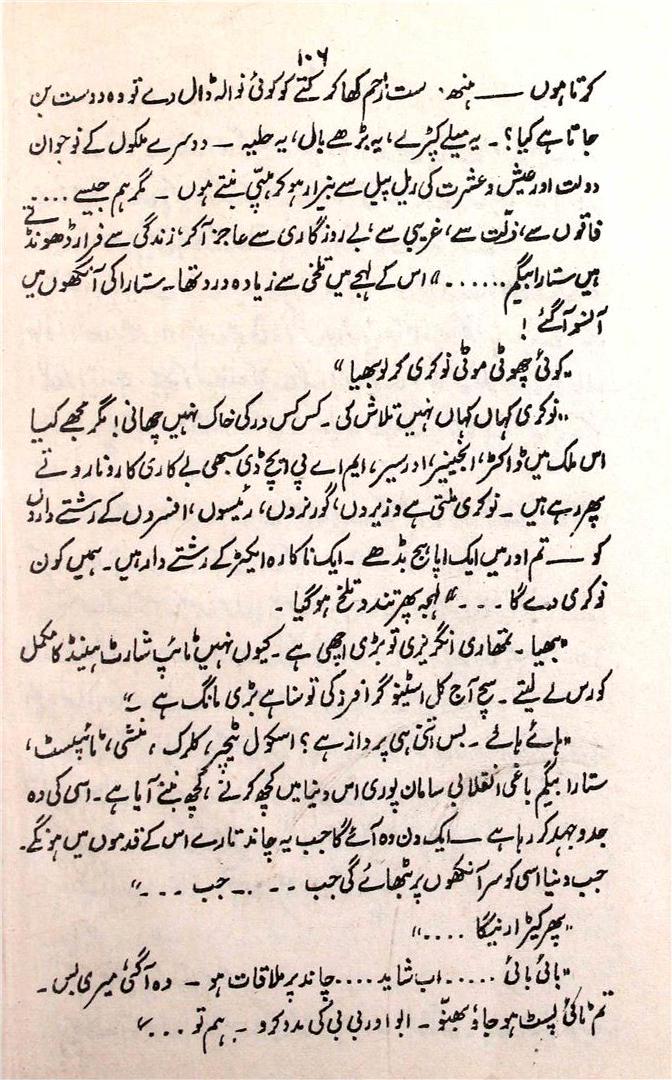 ۱۰۶
کرتا ہوں ــــ ہنھ. ست رحم کھا کر کتے کو کوئی نوالہ ڈال دے تو وہ دوست بن
جاتا ہے کیا؟ ۔ یہ میلے کپڑے، یہ بڑھے بال، یہ حلیہ ــ دوسرے ملکوں کے نوجوان
دولت اور عیش و عشرت کی ریل پیل سے بیزار ہو کر ہپّی بنتے ہوں ۔ مگر ہم جیسے ....
فاقوں سے، ذلّت سے، غریبی سے، بے روزگاری سے عاجز آکر، زندگی سے فرار ڈھونڈتے
ہیں ستارا بیگم ......." اس کے لہجے میں تلخی سے زیادہ درد تھا۔ ستارا کی آنکھوں میں
آنسو آگئے !
"کوئی چھوٹی موٹی نوکری کر لو بھیا"
"نوکری کہاں کہاں نہیں تلاش کی ۔ کس کس در کی خاک نہیں چھانی! مگر مجھے کیا
اس ملک میں ڈاکٹر، انجینیر، اورسیر، ایم اے پی ایچ ڈی سبھی بے کاری کا رونا روتے
پھر رہے ہیں ۔ نوکری ملتی ہے وزیروں، گورنروں، رئیسوں، افسروں کے رشتے داروں
کو ــــ تم اور میں ایک اپاہج بڈھے ۔ ایک ناکارہ ایکٹر کے رشتے دار ہیں ۔ ہمیں کون
نوکری دے گا ..." لہجہ پھر تند و تلخ ہو گیا ۔
"بھیا ۔ تمھاری انگریزی تو بڑی اچھی ہے ۔ کیوں نہیں ٹائپ شارٹ ہینڈ کا مکمل
کورس لے لیتے ۔ سچ آج کل اسٹینو گرافرز کی تو سنا ہے بڑی مانگ ہے ۔"
"ہائے ہائے ۔ بس اتنی ہی پرواز ہے؟ اسکول ٹیچر، کلرک، منشی، ٹائپسٹ،
ستارا بیگم باغی انقلابی سامان پوری اس دنیا میں کچھ کرنے، کچھ بننے آیا ہے ۔ اسی کی وہ
جدوجہد کر رہا ہے ــ ایک دن وہ آئے گا جب یہ چاند تارے اس کے قدموں میں ہونگے۔
جب دنیا اسی کو سر آنکھوں پر بٹھائے گی جب .... جب ..."
"پھر کیڑا رینگا ...."
"بائی بائی ..... اب شاید .... چاند پر ملاقات ہو ــ وہ آگئی میری بس ۔
تم ٹائپسٹ ہو جاؤ بھنّو ۔ ابو اور بی بی کی مدد کرو ۔ ہم تو ..."